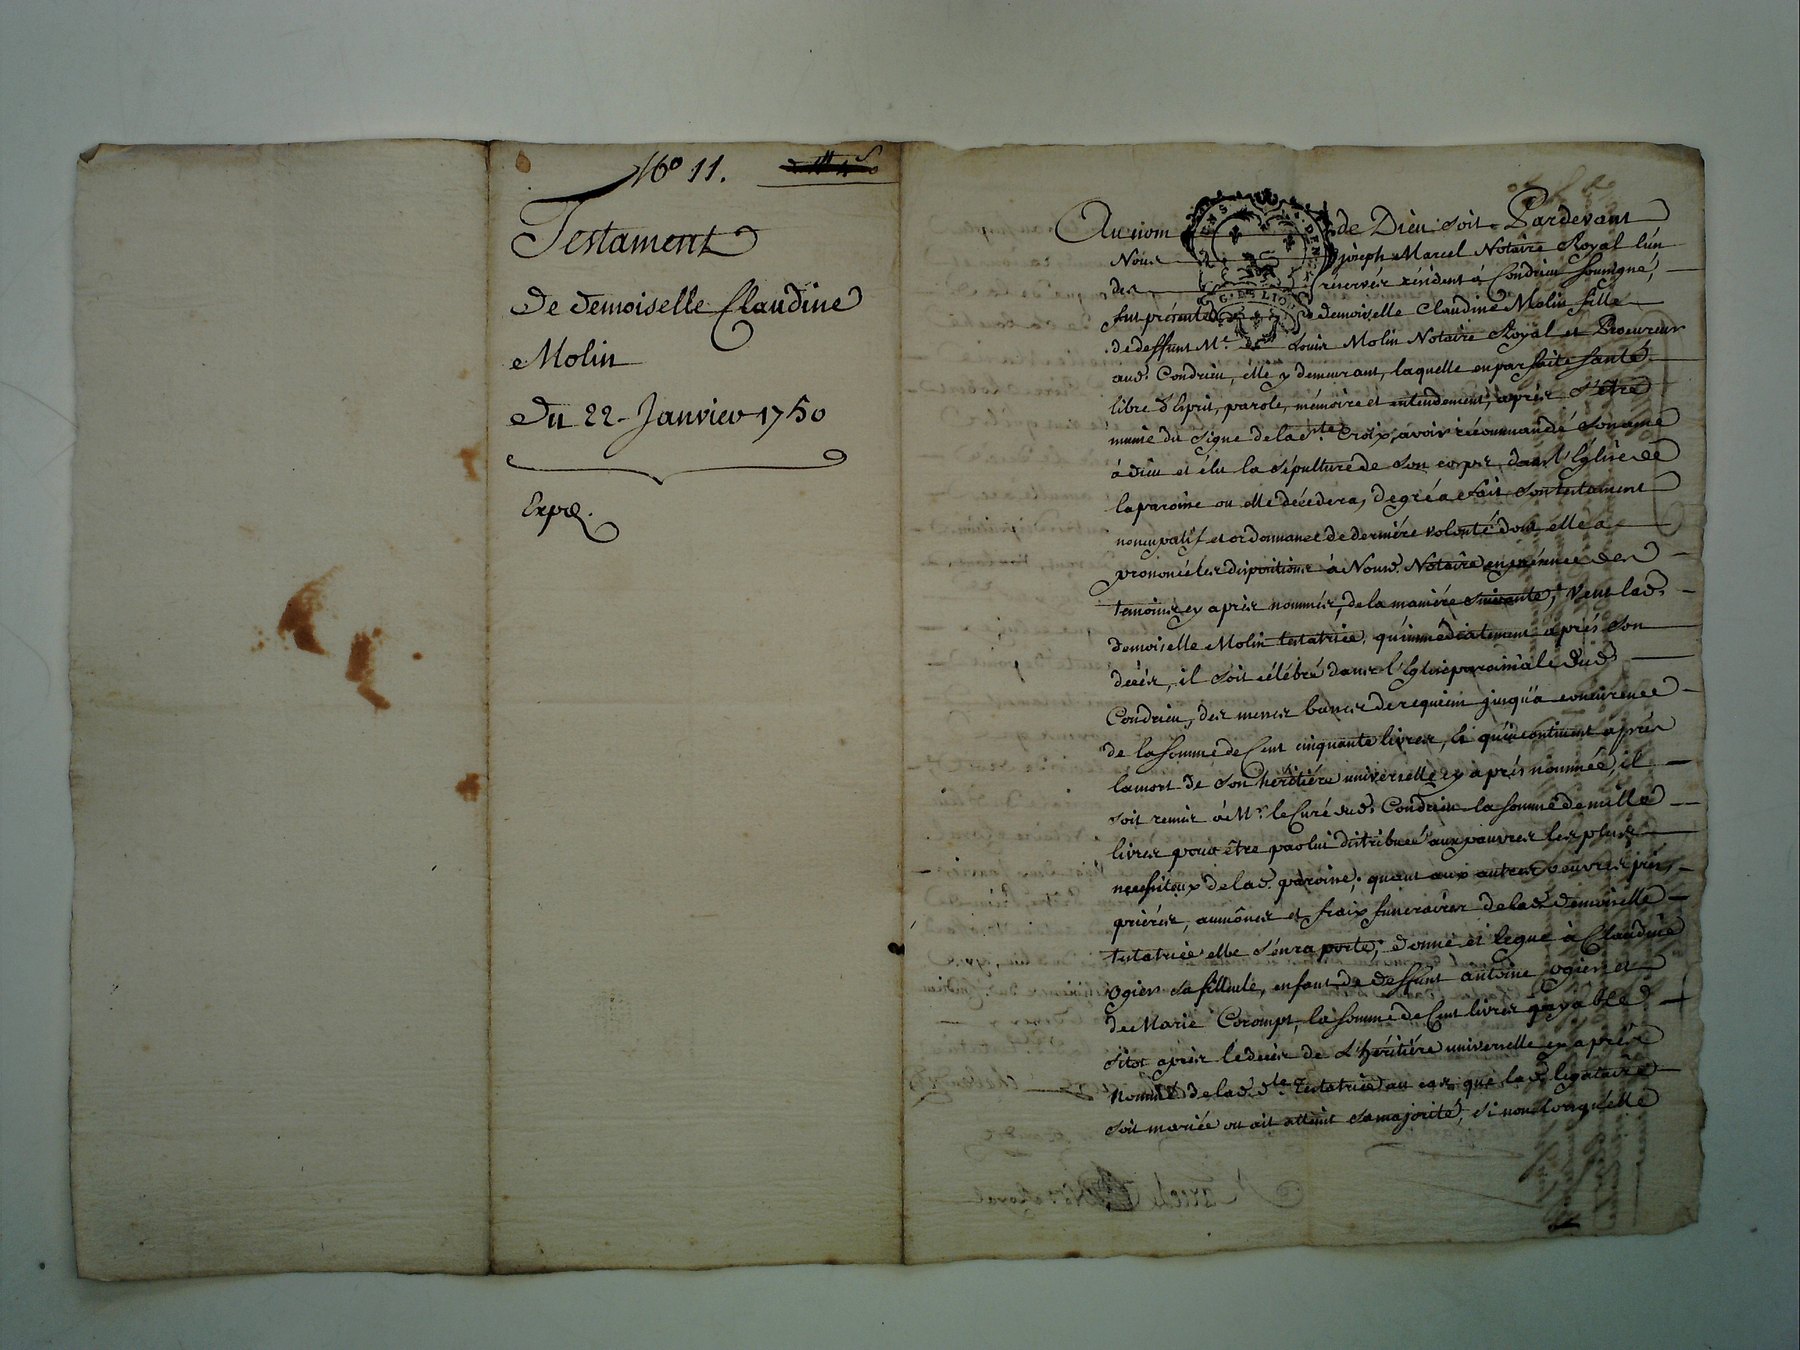 No 11.
Testament
De Demoiselle Claudine
Molin
Du 22 Janvier 1750
Expe.
Au nom de Dieu soit Pardevant
Nous joseph Marcel Notaire Royal l'un
des réservés résident à Condrieu soussigné,
fut présente demoiselle Claudine Molin fille
de deffunt Me Louis Molin Notaire Royal et Procureur
aud. Condrieu, elle y demeurant, laquelle en parfaite santé
libre d'esprit, parole, mémoire et entendement, après s'être
munie du signe de la ste Croix, avoir récommandé son ame
à Dieu et élu la sépulture de son corps, dans l'Eglise de
la paroisse ou elle décedera, de gré a fait son testament
noncupatif et ordonnance de dernière volonté dont elle a
prononcé les dispositions à Nousd. Notaire en présence des
temoins cy après nommés, de la manière suivante; Veut lad.
demoiselle Molin testatrice, qu'immédiatement après son
décès, il soit célébré dans l'Eglise paroissiale dud.
Condrieu, des messes basses de requiem jusqu'à concurence
de la somme de Cent cinquante livres, Et qu'incontinent après
la mort de son héritière universelle cy après nommée, il
soit remis à Mr. le Curé dud. Condrieu la somme de mille
livres pour être par lui distribuée aux pauvres les plus
necessiteux de lad. paroisse; quant aux autres oeuvres pies,
prières, aumônes et fraix funeraires de lad. demoiselle
testatrice elle s'en raporte; donne et legue à Claudine
Ogier sa filleule, enfant de deffunt antoine ogier et
de Marie Corompt, la somme de Cent livres payable
sitot après le décès de l'héritière universelle cy après
nommée de lad. dlle Testatrice au cas que lad. légataire
soit mariée ou ait atteint sa majorité, si non lorsqu'elle